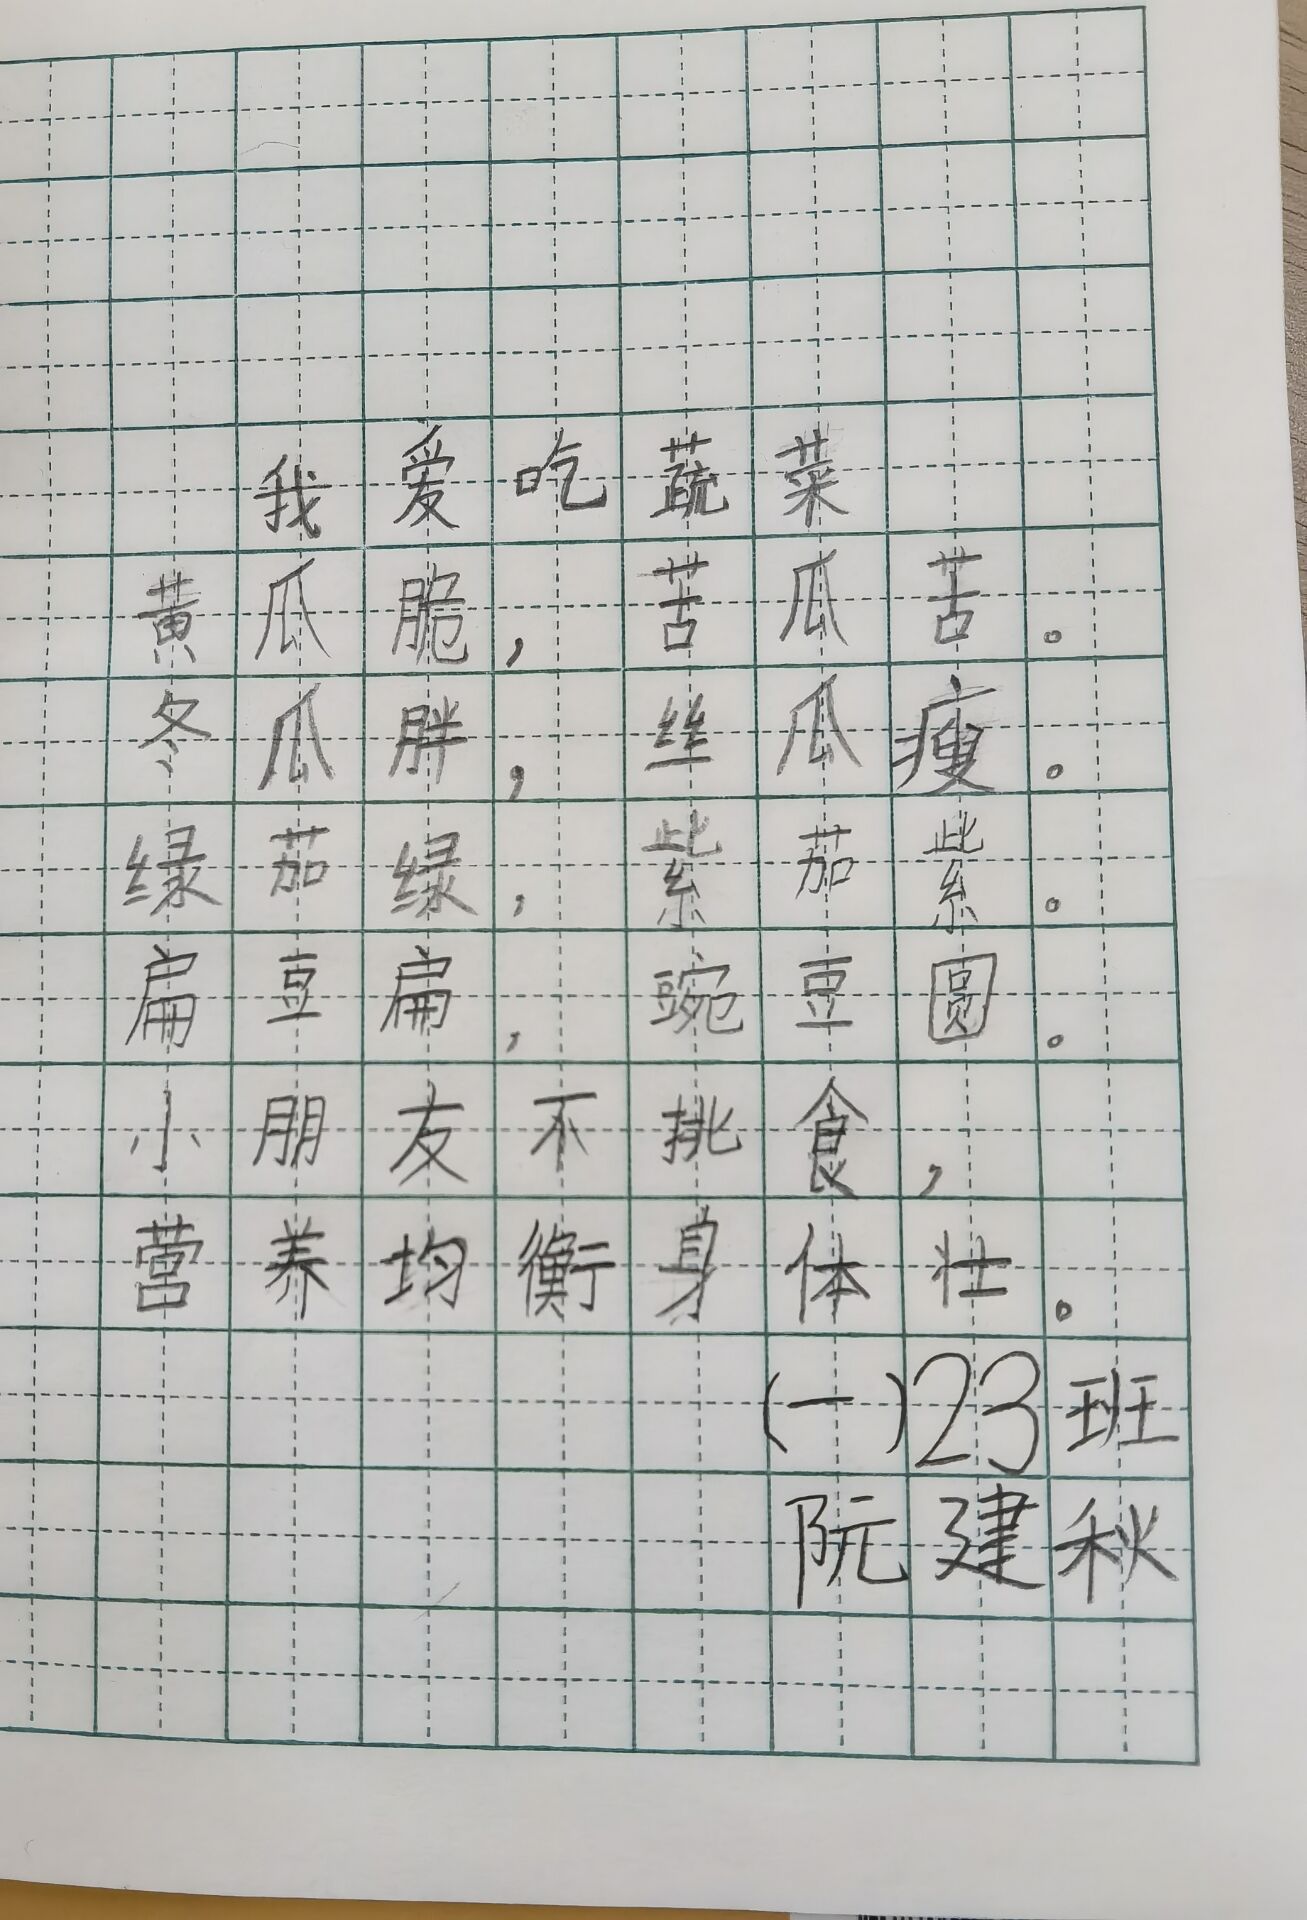 我爱吃蔬菜
黄瓜脆，苦瓜苦。
冬瓜胖，丝瓜瘦。
绿茄绿，紫茄紫。
扁豆扁，豌豆圆。
小朋友不挑食，
营养均衡身体壮。
（一）23班
阮建秋